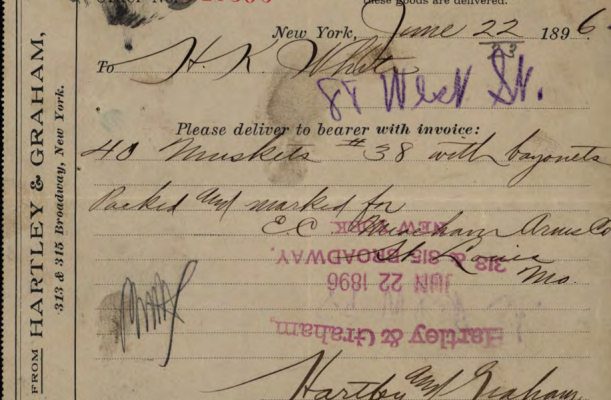 these goods are delivered.
New York, June 22 1896
23
To H. K. White
81 West St.
Please deliver to bearer with invoice:
40 Muskets #38 with bayonets
Packed and marked for
E.C. Meacham Arms Co
St Louis
Mo.
Hartley & Graham,
JUN 22 1896
313 & 315 BROADWAY,
NEW YORK
Hartley and Graham
FROM HARTLEY & GRAHAM,
313 & 315 Broadway, New York.